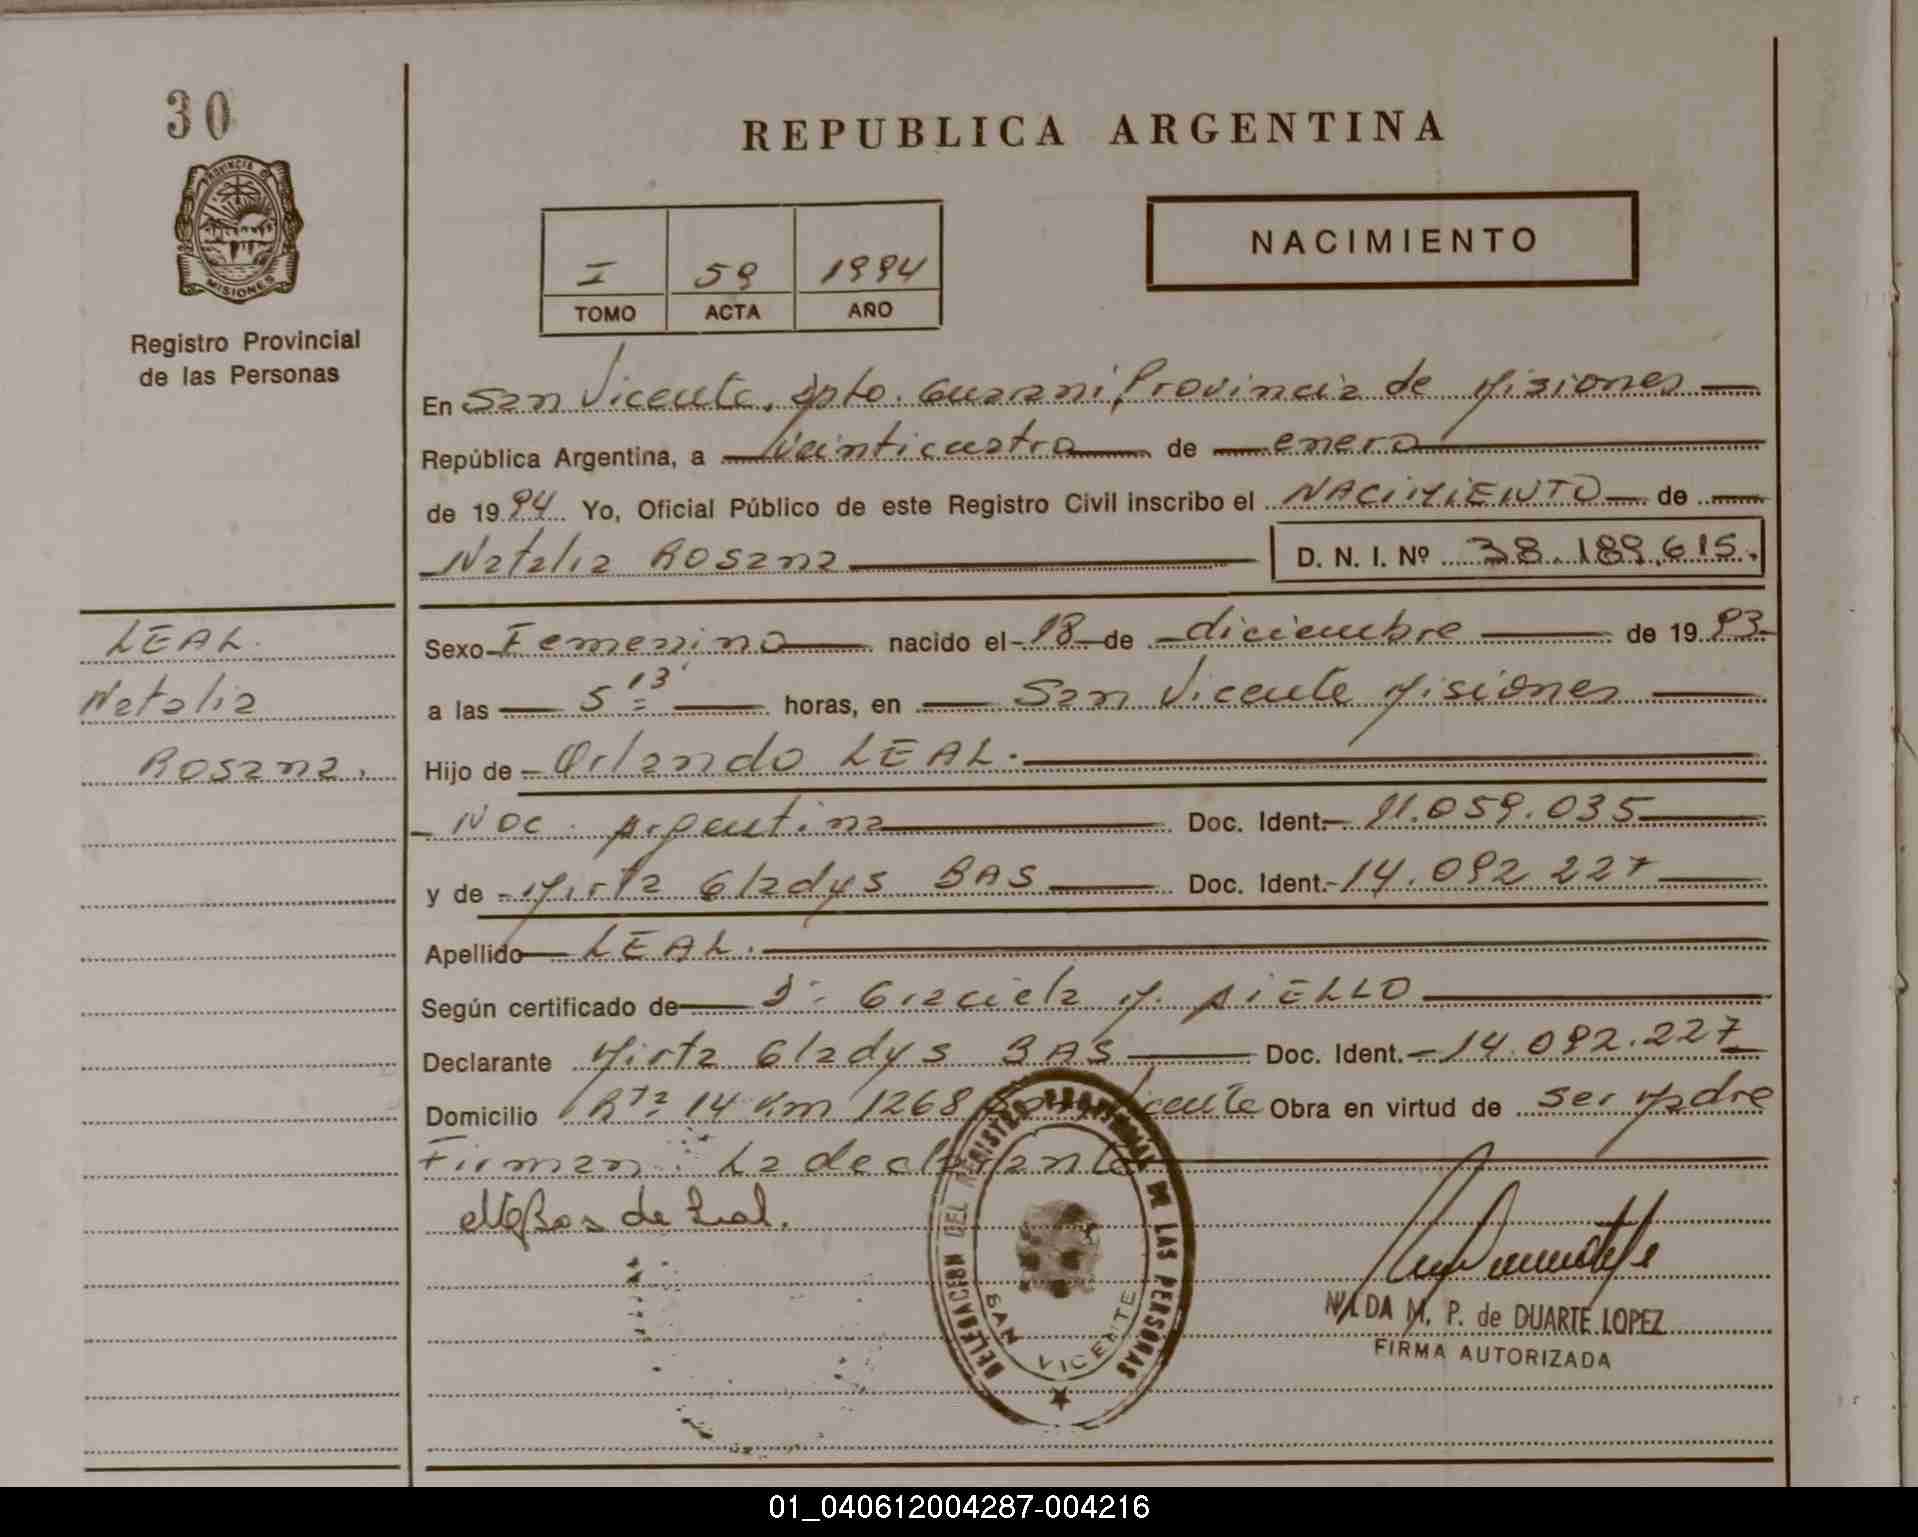 30
PROVINCIA D
MISIONES
Registro Provincial
de las Personas
REPUBLICA ARGENTINA
I 59 1994
TOMO ACTA AÑO
NACIMIENTO
En San Vicente, Dpto. Guarani, Provincia de Misiones
República Argentina, a veinticuatro de enero
de 1994 Yo, Oficial Público de este Registro Civil inscribo el NACIMIENTO de
Natalia Rosana D. N. I. Nº 38.189.615.
LEAL.
Natalia
Rosana.
Sexo Femenino nacido el 18 de diciembre de 1993
a las 5 13' horas, en San Vicente Misiones
Hijo de Orlando LEAL.
Nac. Argentina Doc. Ident. 11.059.035
y de Mirta Gladys BAS Doc. Ident. 14.092.227
Apellido LEAL.
Según certificado de Graciela M. AiELLO
Declarante Mirta Gladys BAS Doc. Ident. 14.092.227
Domicilio Rta 14 Km 1268 San Vicente Obra en virtud de ser Madre
Firman: La declarante
MGBas de Leal.
DELEGACION DEL REGISTRO PROVINCIAL DE LAS PERSONAS
SAN VICENTE
NILDA M. P. de DUARTE LOPEZ
FIRMA AUTORIZADA
01_040612004287-004216